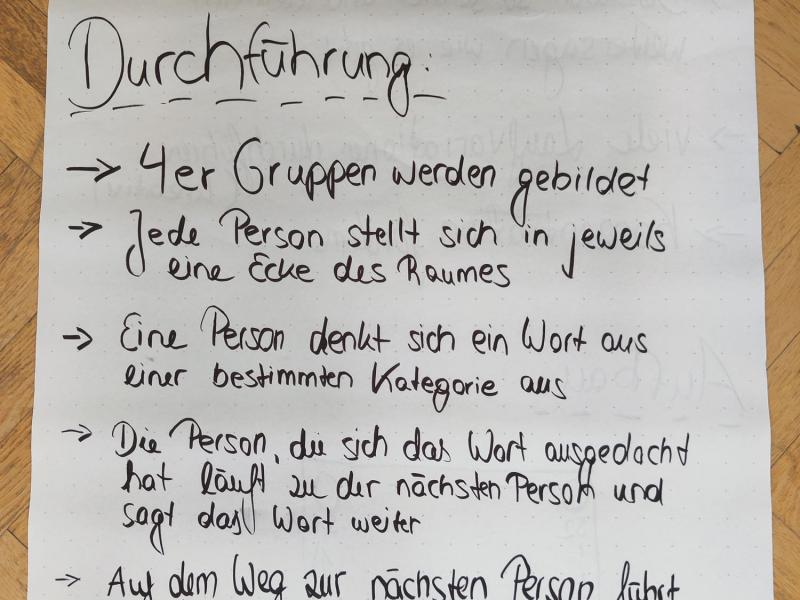 Durchführung:
→ 4er Gruppen werden gebildet
→ Jede Person stellt sich in jeweils
eine Ecke des Raumes
→ Eine Person denkt sich ein Wort aus
einer bestimmten Kategorie aus
→ Die Person, die sich das Wort ausgedacht
hat läuft zu der nächsten Person und
sagt das Wort weiter
→ Auf dem Weg zur nächsten Person führt